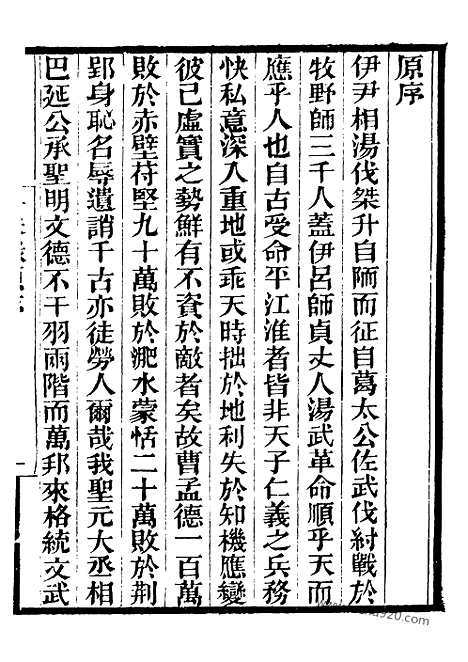 原序
伊尹相湯伐桀升自陑而征自葛太公佐武伐紂戰於
牧野師三千人蓋伊呂師貞丈人湯武革命順乎天而
應乎人也自古受命平江淮者皆非天子仁義之兵務
快私意深入重地或乖天時拙於地利失於知機應變
彼己虛實之勢鮮有不資於敵者矣故曹孟德一百萬
敗於赤壁苻堅九十萬敗於淝水蒙恬二十萬敗於荆
郢身恥名辱遺誚千古亦徒勞人爾哉我聖元大丞相
巴延公承聖明文德不干羽兩階而萬邦來格統文武